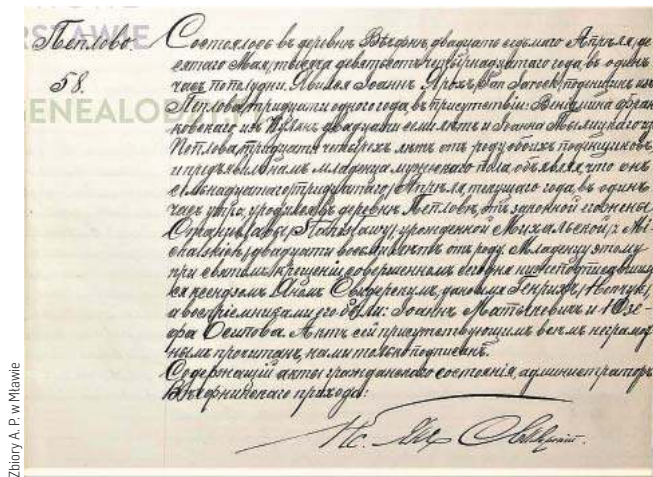 Пеплово.
58.
Состоялось въ деревнѣ Вѣчфнѣ, двадцать седьмаго Апрѣля, де-
сятаго Мая, тысяча девятьсотъ четырнадцатаго года, въ одинъ
часъ пополудни. Явился Іоаннъ Ярохъ, Jan Jaroch, поденщикъ изъ
Пеплова, тридцати одного года, въ присутствіи: Веніамина Фран-
ковскаго изъ двадцати семи лѣтъ и Іоанна изъ
Пеплова, тридцати четырехъ лѣтъ отъ роду, обоихъ поденщиковъ,
и предъявилъ намъ младенца мужескаго пола, объявляя, что онъ
семьнадцатаго тридцатаго Апрѣля, текущаго года, въ одинъ
часъ утра, уродился въ деревнѣ Пепловѣ, отъ законной его жены
Станиславы, Stanisławy, урожденной Михальской, z Mi-
chalskich, двадцати восьми лѣтъ отъ роду. Младенцу этому
при святомъ крещеніи, совершенномъ сегодня нижеподписавшим-
ся ксендзомъ Яномъ Свидерскимъ, дано имя Генрихъ, Henryk,
а воспріемниками его были: Іоаннъ Матыкевичъ и Юзе-
фа Осипова. Актъ сей присутствующимъ всѣмъ неграмот-
нымъ прочитанъ, нами только подписанъ.
Содержащій акты гражданскаго состоянія, администраторъ
прихода:
Кс. Янъ
STAWIE
GENEALOD
Zbiory A. P. w Mławie